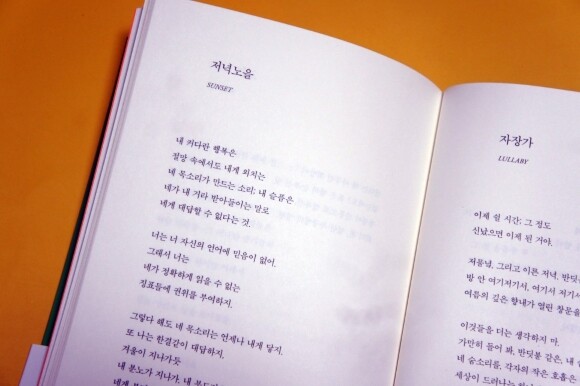 저녁노을
SUNSET
내 커다란 행복은
절망 속에서도 내게 외치는
네 목소리가 만드는 소리; 내 슬픔은
네가 내 거라 받아들이는 말로
네게 대답할 수 없다는 것.
너는 너 자신의 언어에 믿음이 없어.
그래서 너는
네가 정확하게 읽을 수 없는
징표들에 권위를 부여하지.
그렇다 해도 네 목소리는 언제나 내게 닿지.
또 나는 한결같이 대답하지,
겨울이 지나가듯
내 분노가 지나가, 내
자장가
LULLABY
이제 쉴 시간; 그 정도
신났으면 이제 된 거야.
저물녘, 그리고 이른 저녁. 반딧
방 안 여기저기서, 여기서 저기서
여름의 깊은 향내가 열린 창문을
이것들을 더는 생각하지 마.
가만히 들어 봐, 반딧불 같은, 내
네 숨소리를, 각자의 작은 호흡은